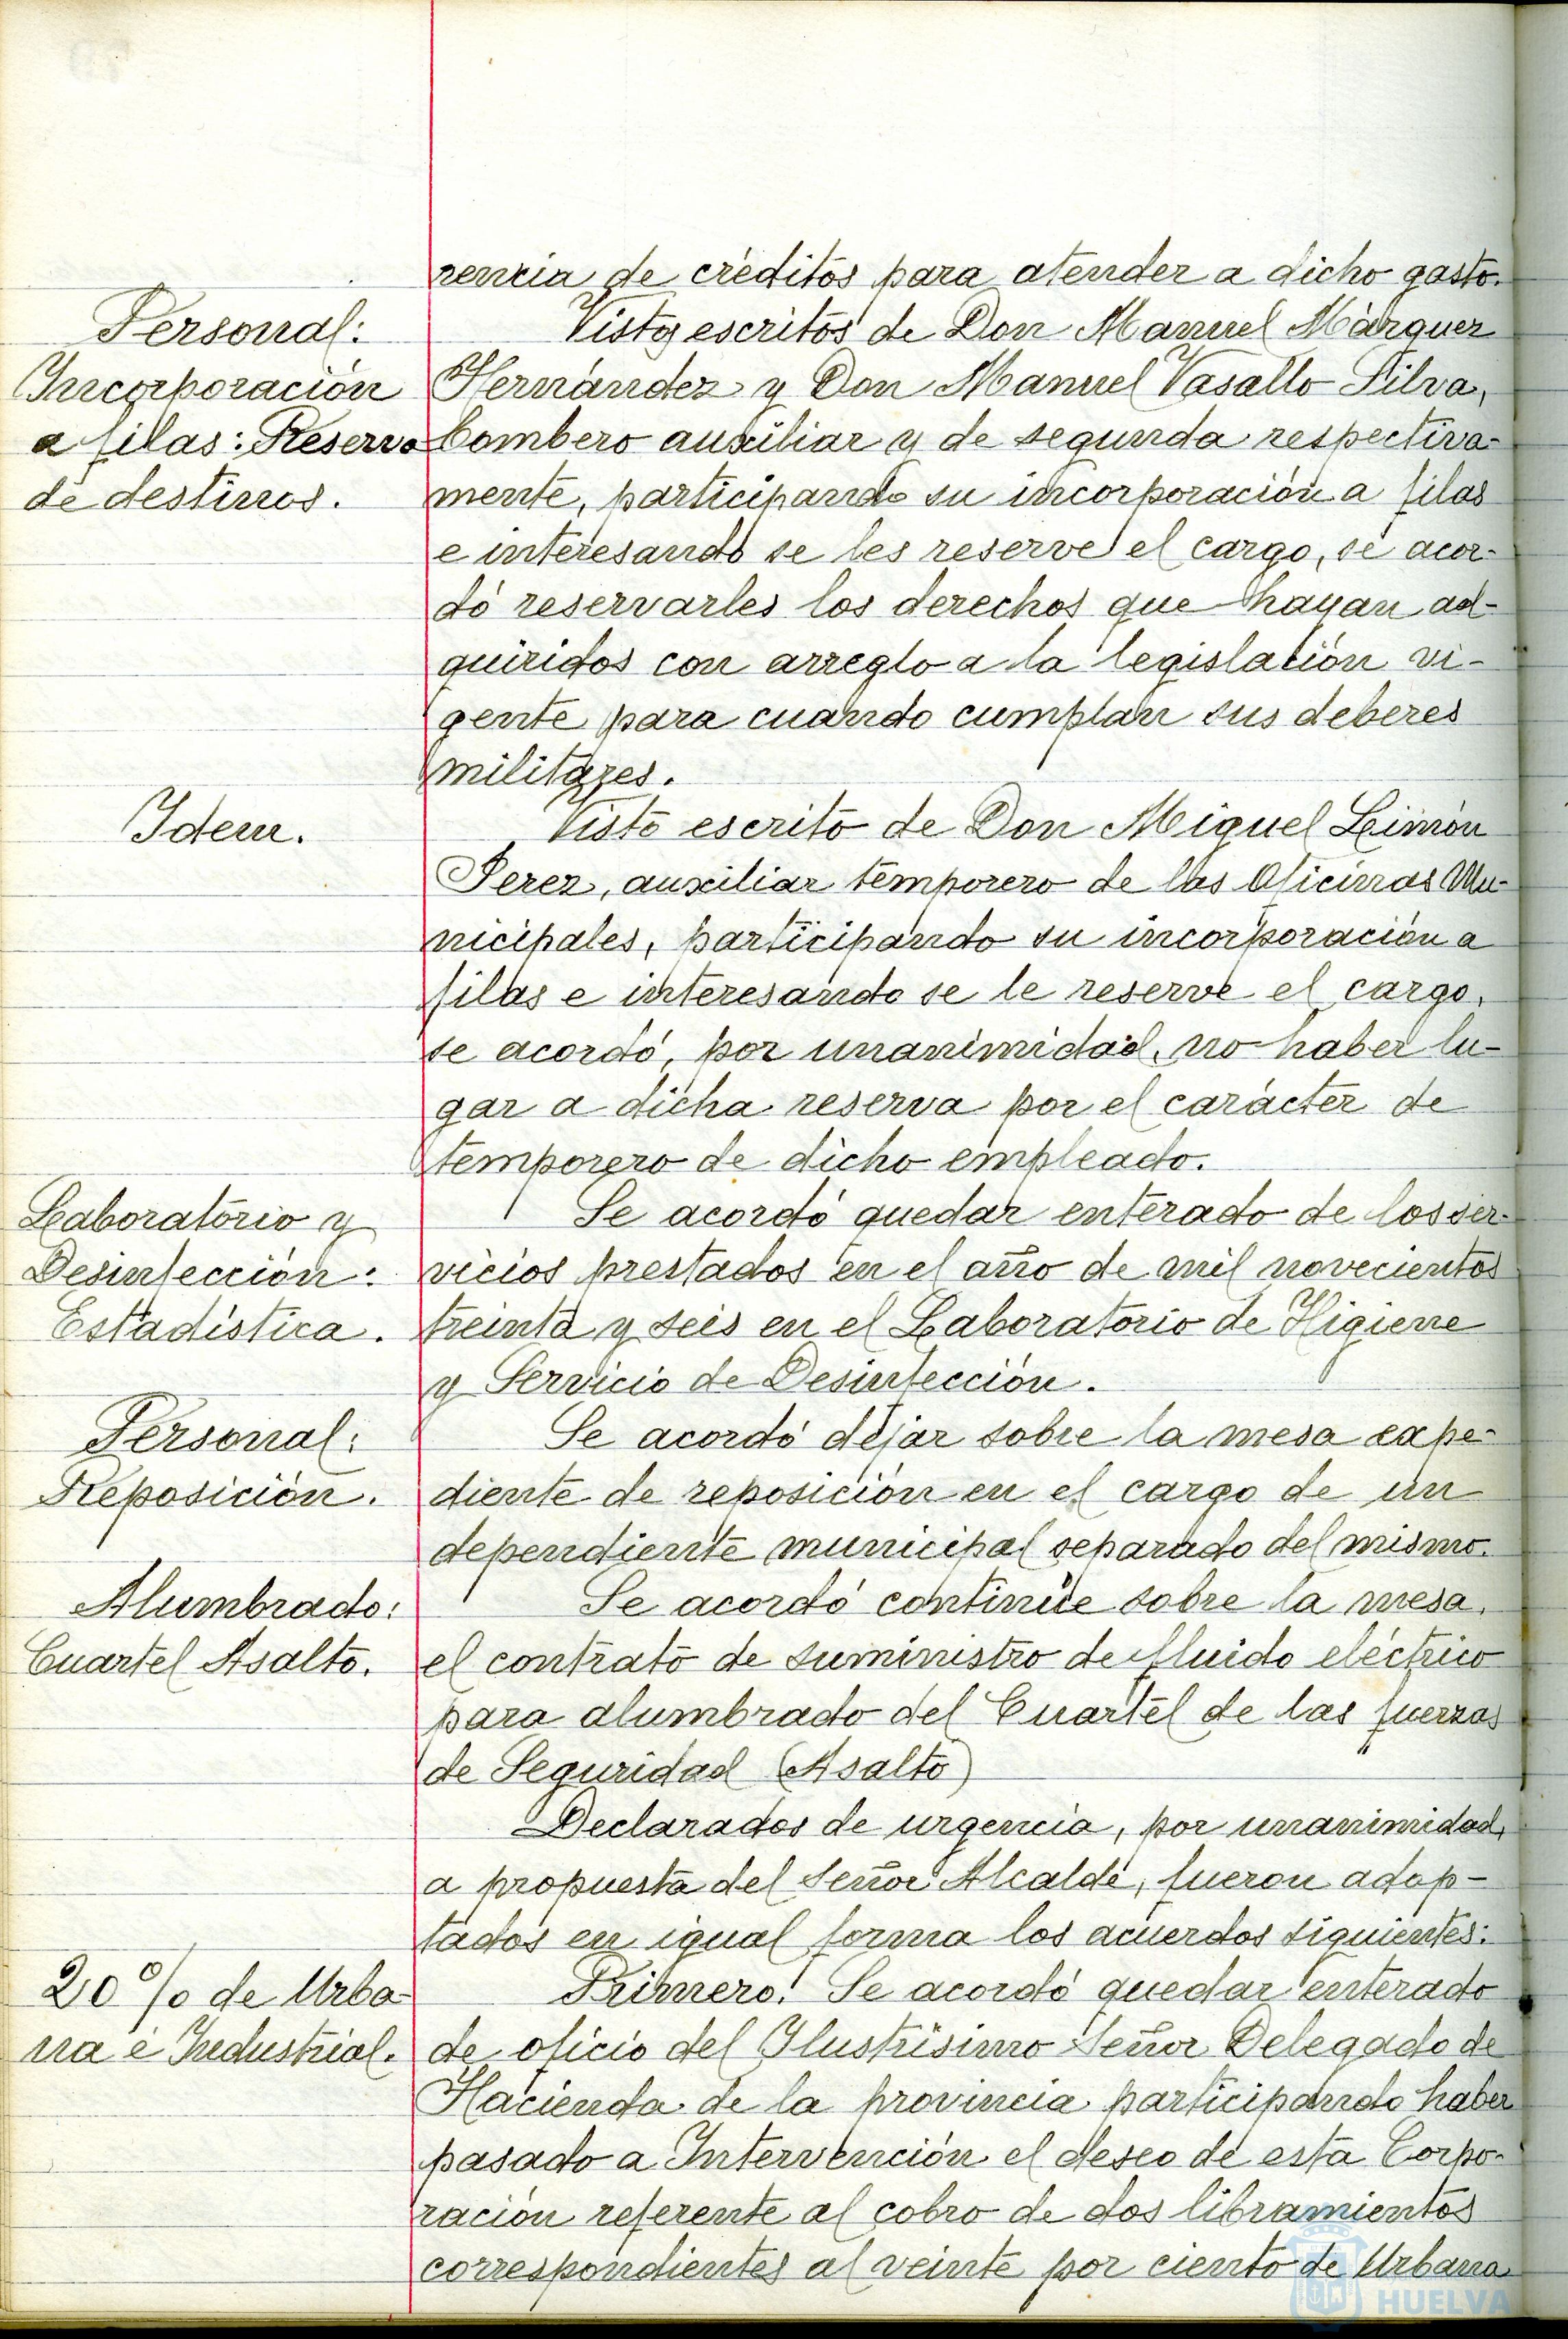 rencia de créditos para atender a dicho gasto.
Personal:
Incorporación
a filas: Reserva
de destinos.
Vistos escritos de Don Manuel Márquez
Hernández y Don Manuel Vasallo Silva,
bombero auxiliar y de segunda respectiva-
mente, participando su incorporación a filas
e interesando se les reserve el cargo, se acor-
dó reservarles los derechos que hayan ad-
quiridos con arreglo a la legislación vi-
gente para cuando cumplan sus deberes
militares.
Idem.
Visto escrito de Don Miguel Limón
Perez, auxiliar temporero de las Oficinas Mu-
nicipales, participando su incorporación a
filas e interesando se le reserve el cargo,
se acordó, por unanimidad, no haber lu-
gar a dicha reserva por el carácter de
temporero de dicho empleado.
Laboratorio y
Desinfección:
Estadística.
Se acordó quedar enterado de los ser-
vicios prestados en el año de mil novecientos
treinta y seis en el Laboratorio de Higiene
y Servicio de Desinfección.
Personal:
Reposición.
Se acordó dejar sobre la mesa expe-
diente de reposición en el cargo de un
dependiente municipal separado del mismo.
Alumbrado:
Cuartel Asalto.
Se acordó continúe sobre la mesa,
el contrato de suministro de fluido eléctrico
para alumbrado del Cuartel de las fuerzas
de Seguridad (Asalto)
Declarados de urgencia, por unanimidad,
a propuesta del Señor Alcalde, fueron adop-
tados en igual forma los acuerdos siguientes:
20% de Urba-
na e Industrial.
Primero: Se acordó quedar enterado
de oficio del Ilustrísimo Señor Delegado de
Hacienda de la provincia participando haber
pasado a Intervención el deseo de esta Corpo-
ración referente al cobro de dos libramientos
correspondientes al veinte por ciento de Urbana
HUELVA